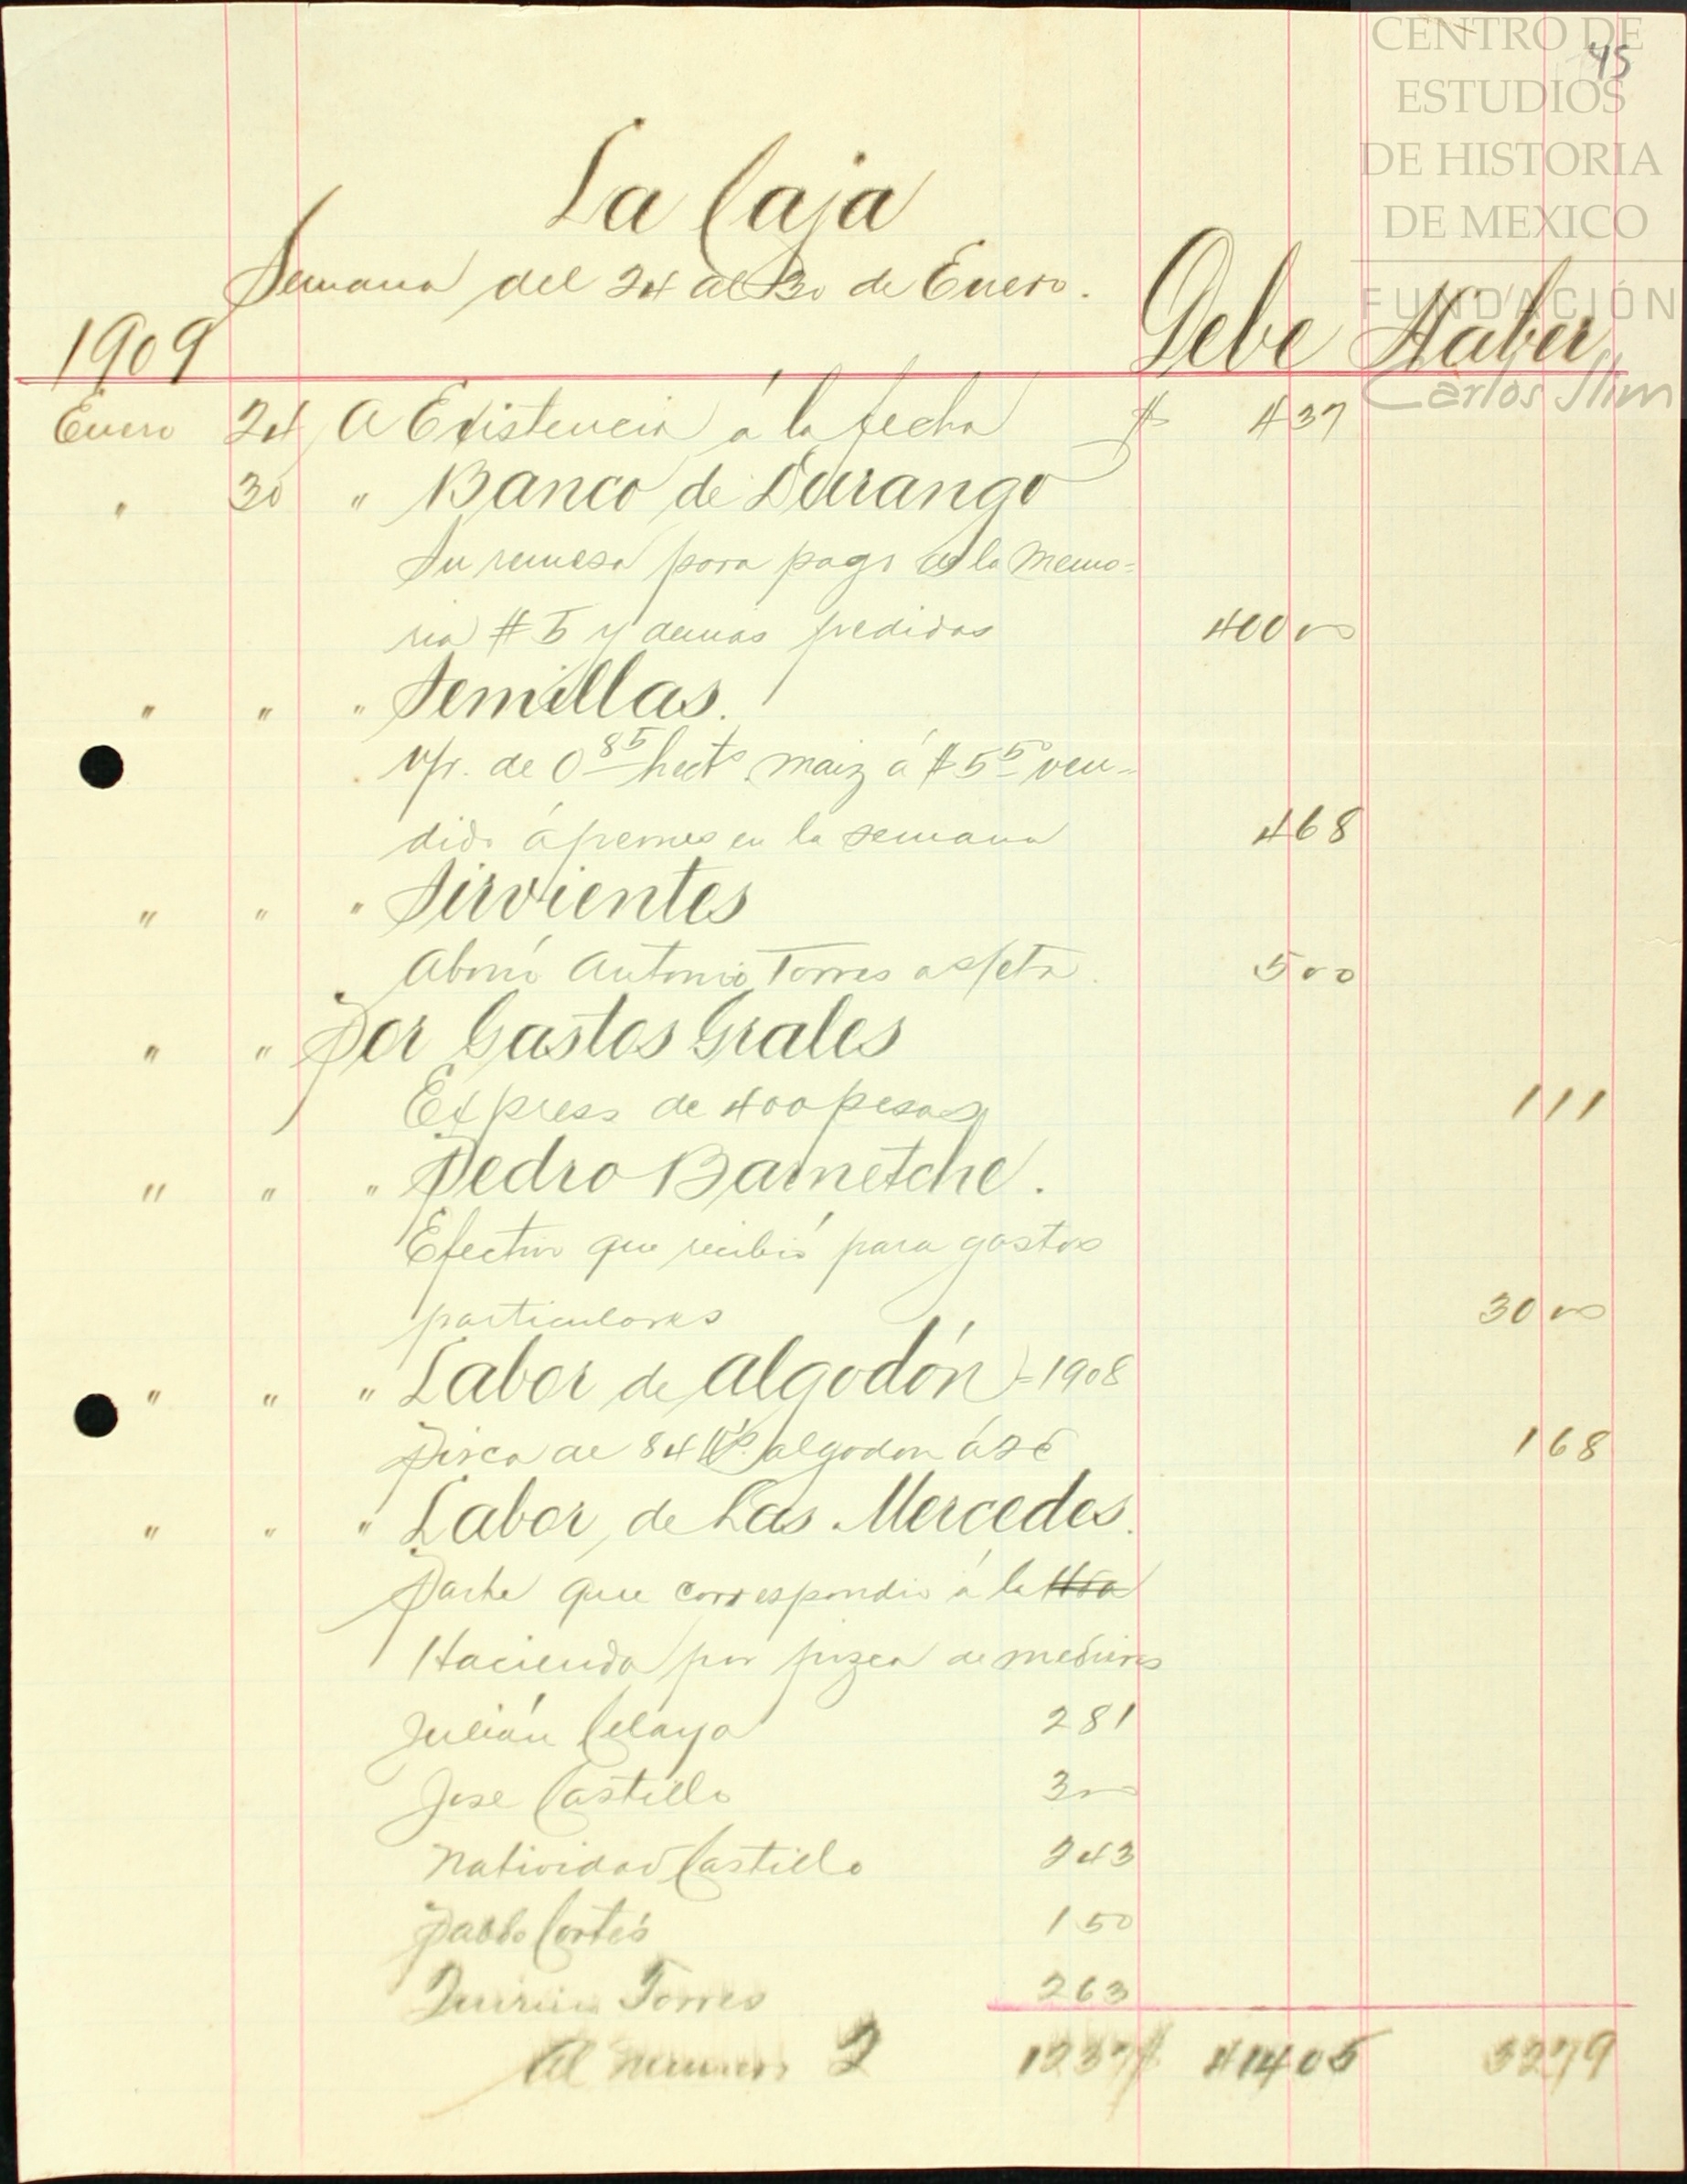 CENTRO DE
ESTUDIOS
DE HISTORIA
DE MEXICO
FUNDACIÓN
Carlos Slim
45
La Caja
Semana del 24 al 30 de Enero.
1909 Debe Haber
Enero 24 A Existencia á la fecha $ 4 37
" 30 " Banco de Durango
Su remesa para pago de la Memo=
ria # 5 y demas pedidos 400 00
" " " Semillas.
Vr. de 0 85 hects. maiz á $5 50 ven-
dido á peones en la semana 4 68
" " " Sirvientes
Abonó Antonio Torres a s/cta. 5 00
" " Por Gastos Grales
Express de 400 pesos 1 11
" " " Pedro Barnetche.
Efectivo que recibió para gastos
particulares 30 00
" " " Labor de algodón = 1908
Pisca de 84 Ks. algodon á 2¢ 1 68
" " " Labor de Las Mercedes.
Parte que correspondio á la Hda
Hacienda por pizca de medieros
Julián Celaya 2 81
Jose Castillo 3 00
Natividad Castillo 2 43
Pablo Cortés 1 50
Quirino Torres 2 63
Al numero 2 12 37 $ 414 05 32 79